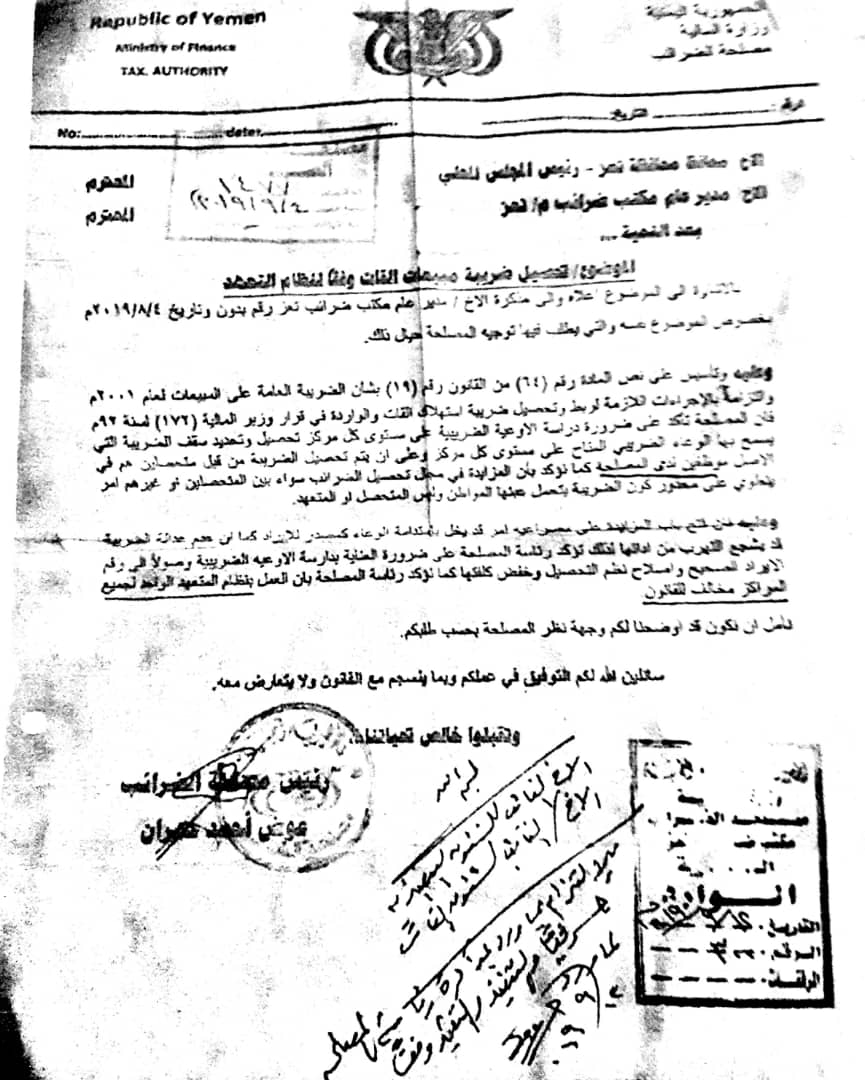 Republic of Yemen
Ministry of Finance
TAX. AUTHORITY
الجمهورية اليمنية
وزارة المالية
مصلحة الضرائب
No: date:
التاريخ:
الرقم:
١٤٧٧
٢٠١٩/٩/٤
الاخ محافظ محافظة تعز - رئيس المجلس المحلي المحترم
الاخ مدير عام مكتب ضرائب م/ تعز المحترم
بعد التحية ...
الموضوع/ تحصيل ضريبة مبيعات القات وفقا لنظام التعهد
بالاشارة الى الموضوع اعلاه والى مذكرة الاخ / مدير عام مكتب ضرائب تعز رقم بدون وتاريخ ٢٠١٩/٨/٤م
بخصوص الموضوع عينه والتي يطلب فيها توجيه المصلحة حيال ذلك.
وعليه وتأسيس على نص المادة رقم (٦٤) من القانون رقم (١٩) بشأن الضريبة العامة على المبيعات لعام ٢٠٠١م
والتزاما بالإجراءات اللازمة لربط وتحصيل ضريبة استهلاك القات والواردة في قرار وزير المالية (١٧٢) لسنة ٩٢م
فان المصلحة تأكد على ضرورة دراسة الاوعية الضريبية على مستوى كل مركز تحصيل وتحديد سقف الضريبة التي
يسمح بها الوعاء الضريبي المتاح على مستوى كل مركز وعلى ان يتم تحصيل الضريبة من قبل متحصلين هم في
الاصل موظفين لدى المصلحة كما نؤكد بأن المزايدة في مجال تحصيل الضرائب سواء بين المتحصلين او غيرهم امر
ينطوي على محذور كون الضريبة يتحمل عبئها المواطن وليس المتحصل او المتعهد.
وعليه فان فتح باب المزايدة على مصراعيه امر قد يخل بأستدامة الوعاء كمصدر للإيراد كما ان عدم عدالة الضريبة
قد يشجع التهرب من ادائها لذلك تؤكد رئاسة المصلحة على ضرورة العناية بدارسة الاوعيه الضريبية وصولاً الى رقم
الايراد الصحيح واصلاح نظم التحصيل وخفض كلفتها كما نؤكد رئاسة المصلحة بأن العمل بنظام المتعهد الواحد لجميع
المراكز مخالف للقانون
نأمل ان نكون قد أوضحنا لكم وجهة نظر المصلحة بحسب طلبكم.
سائلين الله لكم التوفيق في عملكم وبما ينسجم مع القانون ولا يتعارض معه.
وتقبلوا خالص تحياتنا،
رئيس مصلحة الضرائب
عوض أحمد
الاخ
الاخ /
الوارد
التاريخ: